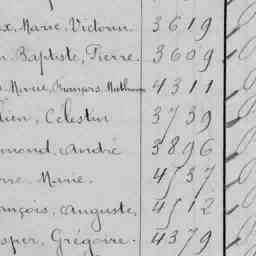 ux, Marie, Victorin. 3619
n Baptiste, Pierre. 3609
Marie, François, Mathurin 4311
lien, Célestin 3739
mond, André 3896
rre, Marie. 4537
ançois, Auguste, 4512
sper, Grégoire. 4379